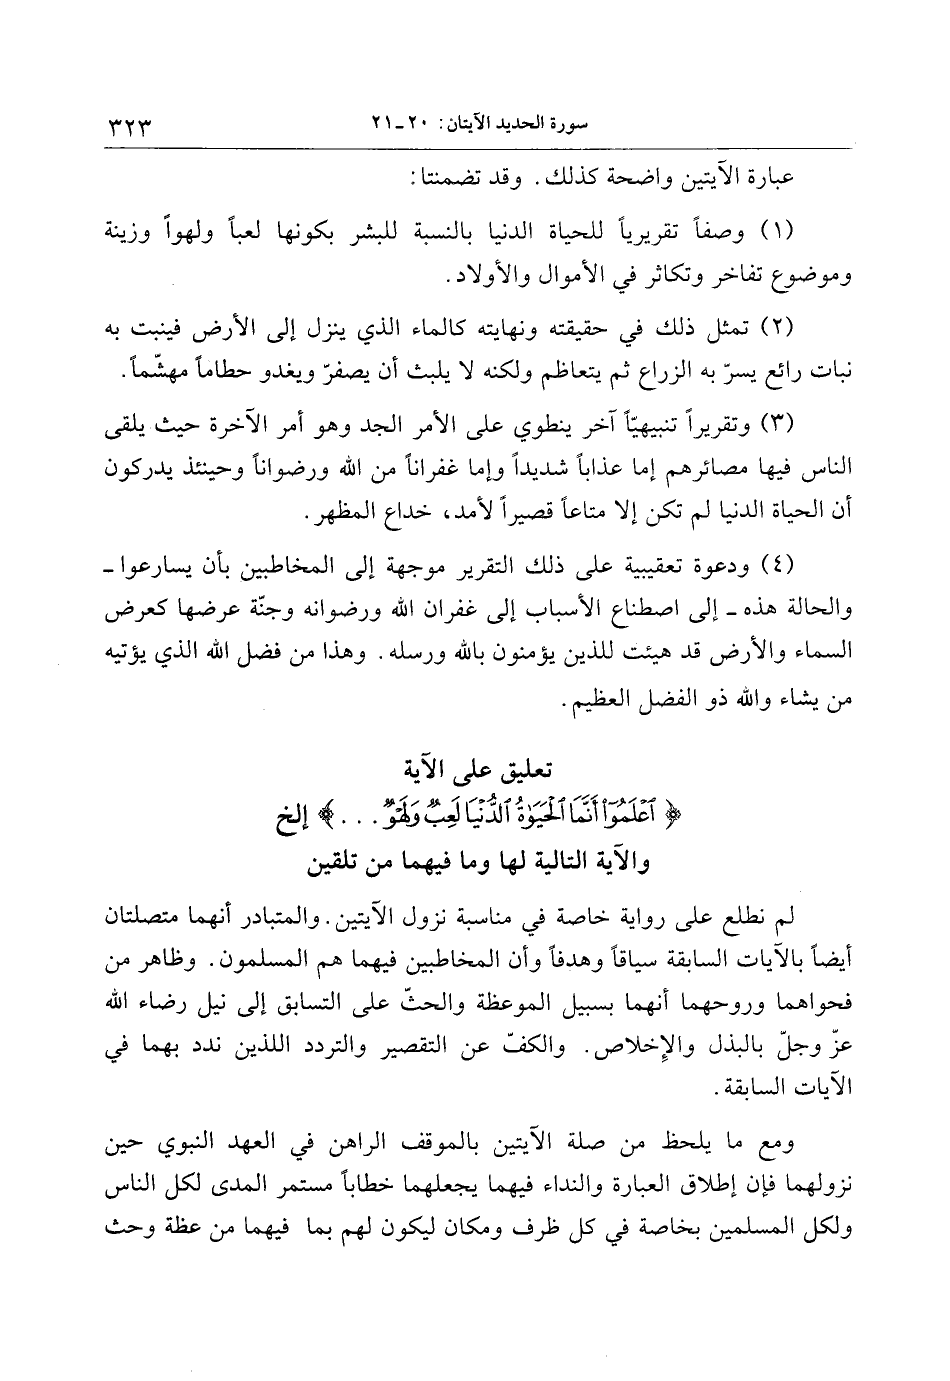 سورة الحديد الآيتان: ٢٠ـ٢١ ٣٢٣
عبارة الآيتين واضحة كذلك. وقد تضمنتا:
(١) وصفاً تقريرياً للحياة الدنيا بالنسبة للبشر بكونها لعباً ولهواً وزينة
وموضوع تفاخر وتكاثر في الأموال والأولاد.
(٢) تمثل ذلك في حقيقته ونهايته كالماء الذي ينزل إلى الأرض فينبت به
نبات رائع يسرّ به الزراع ثم يتعاظم ولكنه لا يلبث أن يصفرّ ويغدو حطاماً مهشّماً.
(٣) وتقريراً تنبيهيّاً آخر ينطوي على الأمر الجد وهو أمر الآخرة حيث يلقى
الناس فيها مصائرهم إما عذاباً شديداً وإما غفراناً من الله ورضواناً وحينئذ يدركون
أن الحياة الدنيا لم تكن إلا متاعاً قصيراً لأمد، خداع المظهر.
(٤) ودعوة تعقيبية على ذلك التقرير موجهة إلى المخاطبين بأن يسارعوا ـ
والحالة هذه ـ إلى اصطناع الأسباب إلى غفران الله ورضوانه وجنّة عرضها كعرض
السماء والأرض قد هيئت للذين يؤمنون بالله ورسله. وهذا من فضل الله الذي يؤتيه
من يشاء والله ذو الفضل العظيم.
تعليق على الآية
﴿ ٱعْلَمُوٓا۟ أَنَّمَا ٱلْحَيَوٰةُ ٱلدُّنْيَا لَعِبٌ وَلَهْوٌ . . . ﴾ إلخ
والآية التالية لها وما فيهما من تلقين
لم نطلع على رواية خاصة في مناسبة نزول الآيتين. والمتبادر أنهما متصلتان
أيضاً بالآيات السابقة سياقاً وهدفاً وأن المخاطبين فيهما هم المسلمون. وظاهر من
فحواهما وروحهما أنهما بسبيل الموعظة والحثّ على التسابق إلى نيل رضاء الله
عزّ وجلّ بالبذل والإخلاص. والكفّ عن التقصير والتردد اللذين ندد بهما في
الآيات السابقة.
ومع ما يلحظ من صلة الآيتين بالموقف الراهن في العهد النبوي حين
نزولهما فإن إطلاق العبارة والنداء فيهما يجعلهما خطاباً مستمر المدى لكل الناس
ولكل المسلمين بخاصة في كل ظرف ومكان ليكون لهم بما فيهما من عظة وحث